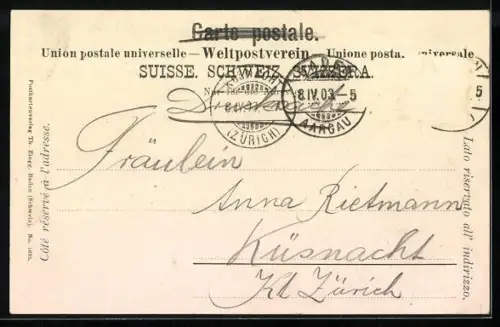 Carte postale.
Union postale universelle — Weltpostverein — Unione posta. universale
SUISSE. SCHWEIZ. SVIZZERA.
Nur für die Adresse
Drucksache
BADEN
8.IV.03.-5
AARGAU
KÜSNACHT
8.IV.03
(ZÜRICH)
5
Fräulein
Anna Rietmann
Küsnacht
Kt. Zürich
Côté réservé à l'adresse.
Postkartenverlag Th. Zingg, Baden (Schweiz). No.
Lato riservato all' indirizzo.